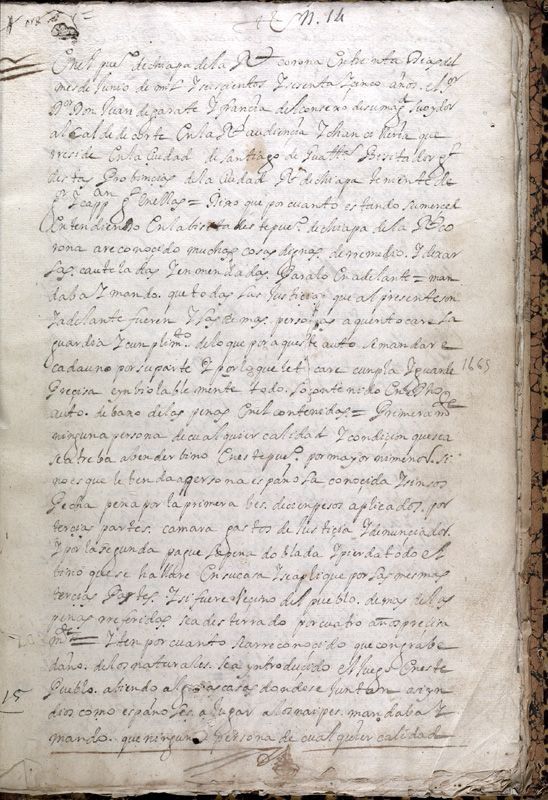 N. 14
En el pueo. de chiapa de la Rl. corona En treinta Dias del
mes de Junio de mil Y seiscientos Y sesenta Y sinco años. el Sr.
Dor. Don Juan de garate Y francia del consexo de su magd. su oydor
alCalde de corte En la Rl. audiencia Y chancilleria que
rreside En la Ciudad de santiago de Guatha. Besitador gl.
destas Probincias de la Ciudad Rl. de chiapa teniente de
Gr. Y capan. gl. En ellas = Dixo que por cuanto estando su merced
Entendiendo En la bisita deste pueo. de chiapa de la Rl. co
rona a reconocido muchas cosas dignas de rremedio. Y dexar
las cauteladas Y enmendadas Para lo En adelante = man
daba Y mando. que todas las Justicias que al presente son
Y adelante fueren Y las demas personas a quien tocare la
guardia Y cumplimto. de lo que por aqueste auto. se mandare
cada uno por su parte Y por lo que le tocare cumpla Y guarde
1665
Precisa e inbiolablemente todo. lo contenido En Dho.
auto. debaxo de las penas En el contenidas = Primeramte.
ninguna persona de cualquier calidad Y condicion que sea
se atreba a bender bino En este pueo. por mayor ni menor. si
no es que le benda a persona española conocida Y sin sos
Pecha pena por la primera bes. de cien pesos aplicados. por
tercias partes. camara gastos de Justicia Y denunciador
Y por la segunda pague la pena doblada Y pierda todo el
bino que se hallare En su casa Y se aplique por las mesmas
tercias Partes. Y si fuere Vecino del pueblo. demas de las
penas rreferidas sea desterrado por cuatro años precisa
mte. = Y ten por cuanto a rreconocido que con grabe
daño. de los naturales. se a yntroducido el Juego En este
Pueblo. abiendo algunas casas donde se Juntan asi yn
dios como españoles a Jugar a los naipes. mandaba Y
15
mando. que ninguna persona de cualquier calidad